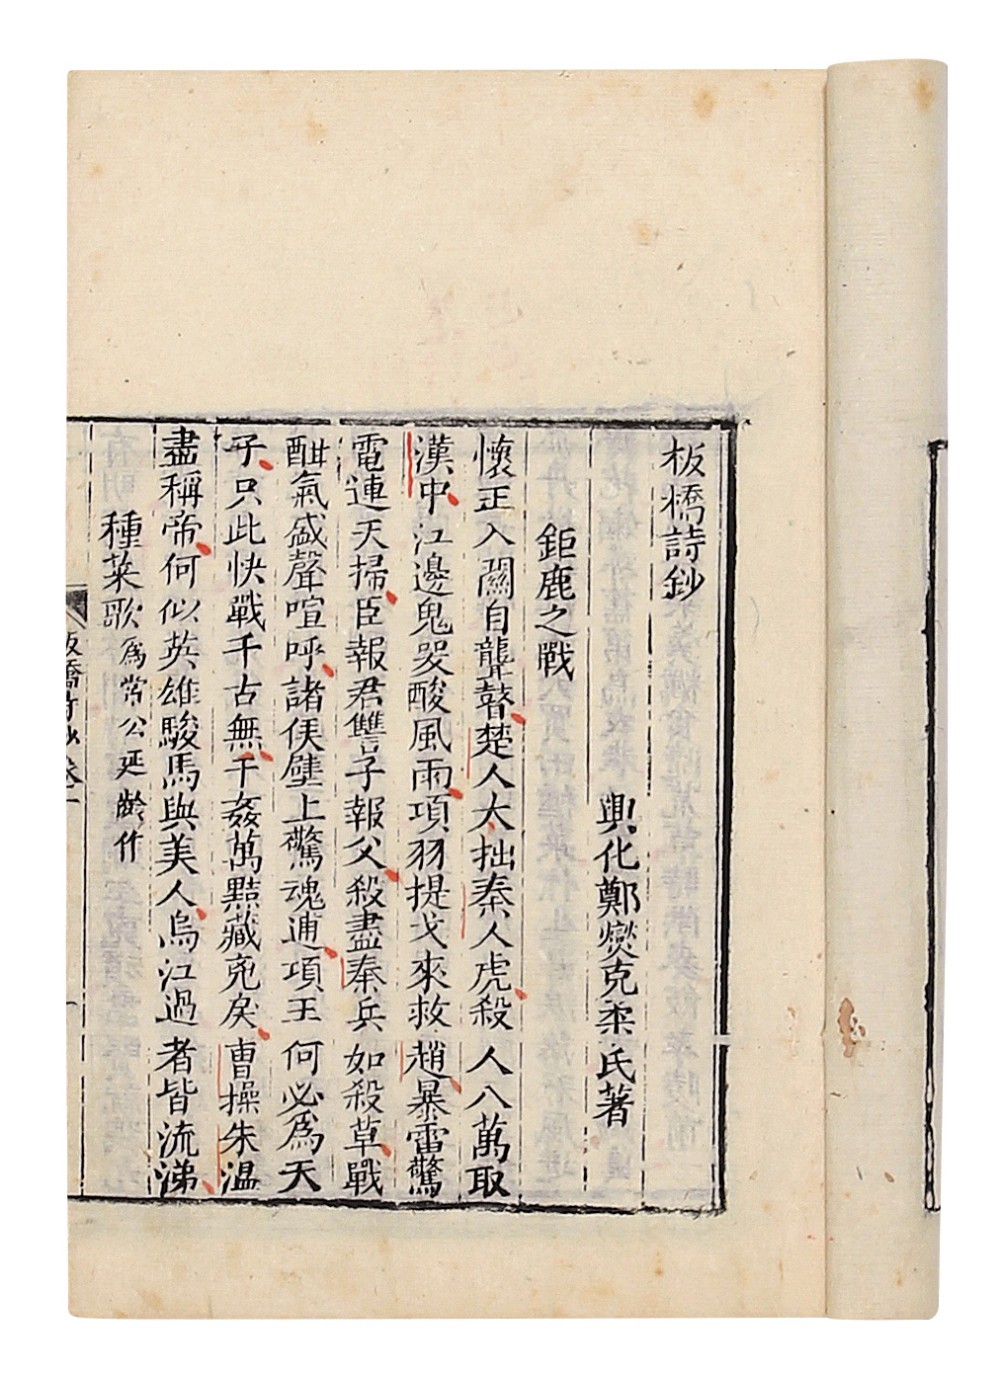 板橋詩鈔
興化鄭燮克柔氏著
鉅鹿之戰
懷王入關自聾瞽楚人太拙秦人虎殺人八萬取
漢中江邊鬼哭酸風雨項羽提戈來救趙暴雷驚
電連天掃臣報君讐子報父殺盡秦兵如殺草戰
酣氣盛聲喧呼諸侯壁上驚魂逋項王何必爲天
子只此快戰千古無千姦萬黠藏兇戾曹操朱溫
盡稱帝何似英雄駿馬與美人烏江過者皆流涕
種菜歌爲常公延齡作